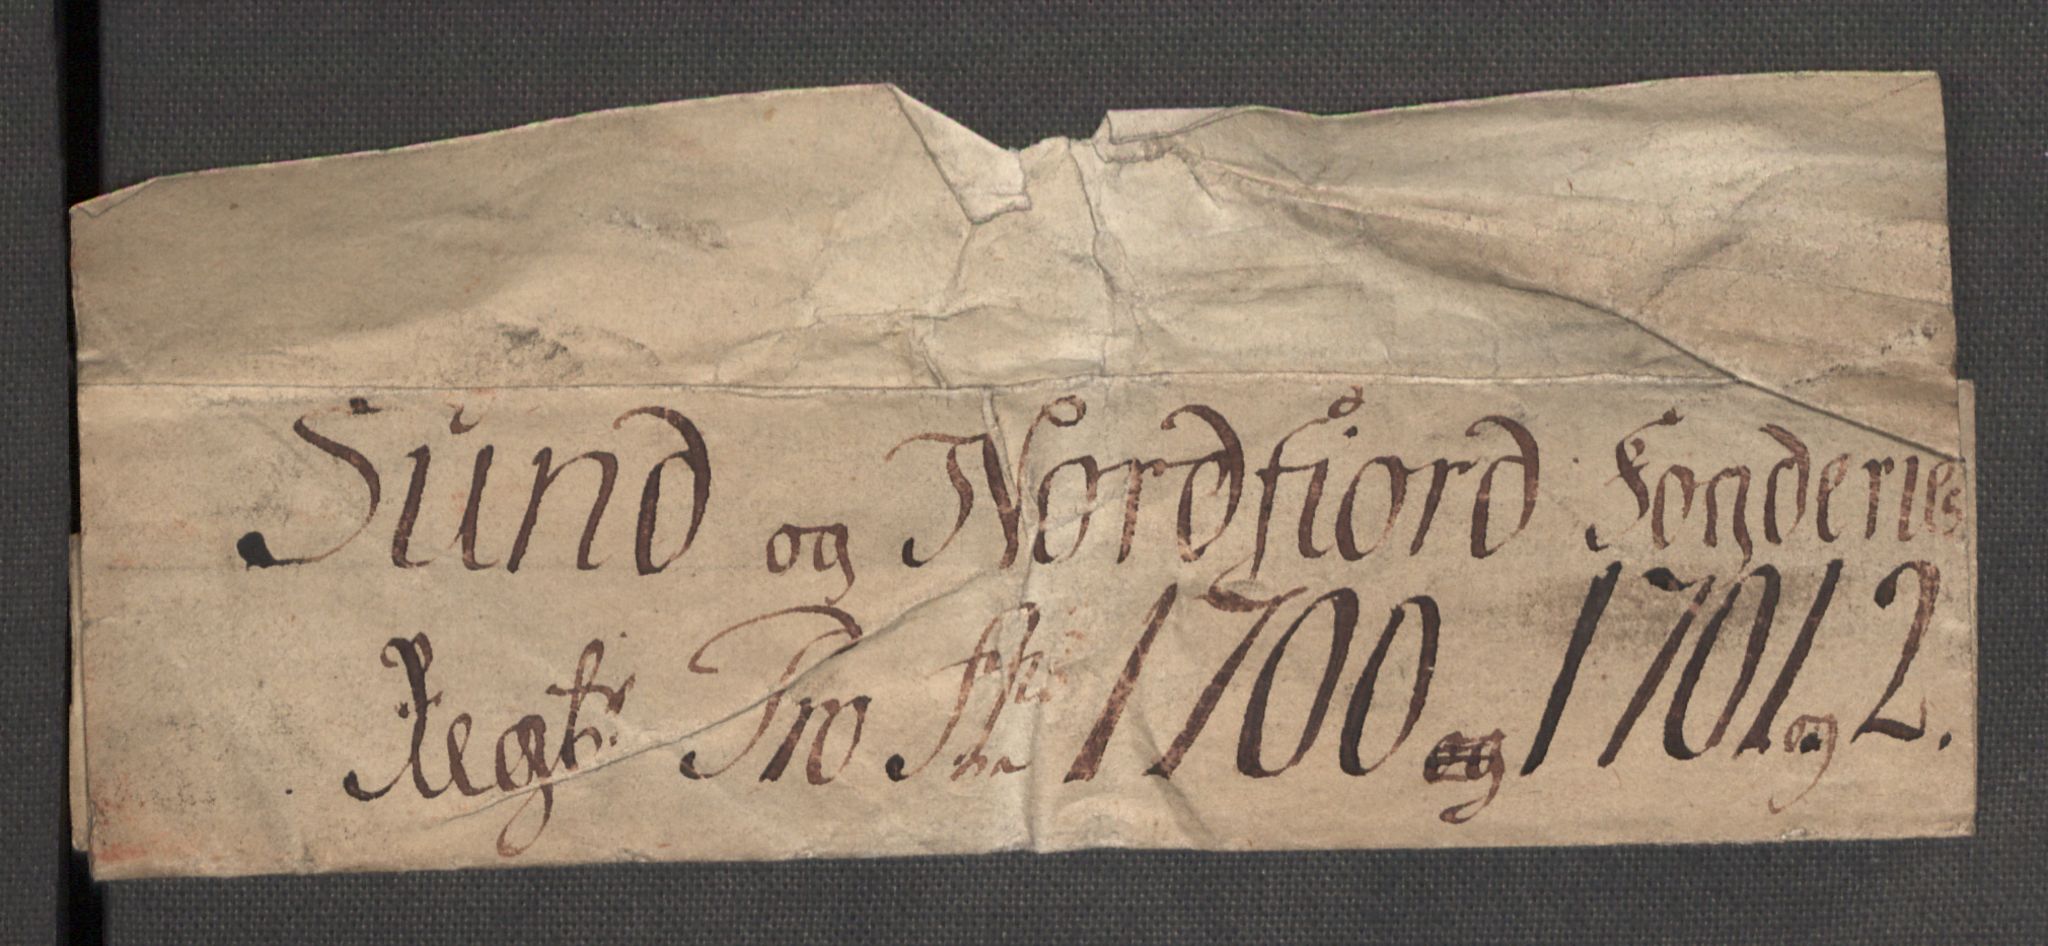 Sund og Nordfiord Fogderies
Regtr Pro 1700 og 1701 og 2.